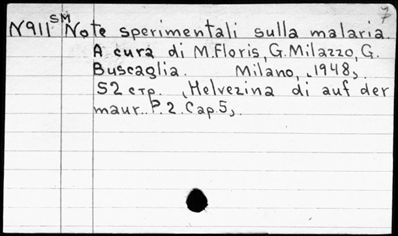 7
N911 SM Note sperimentali sulla malaria.
A cura di M.Floris, G.Milazzo, G.
Buscaglia. Milano, 1948,.
52 стр. (Helvezina di auf der
maur. P.2. Cap.5,.